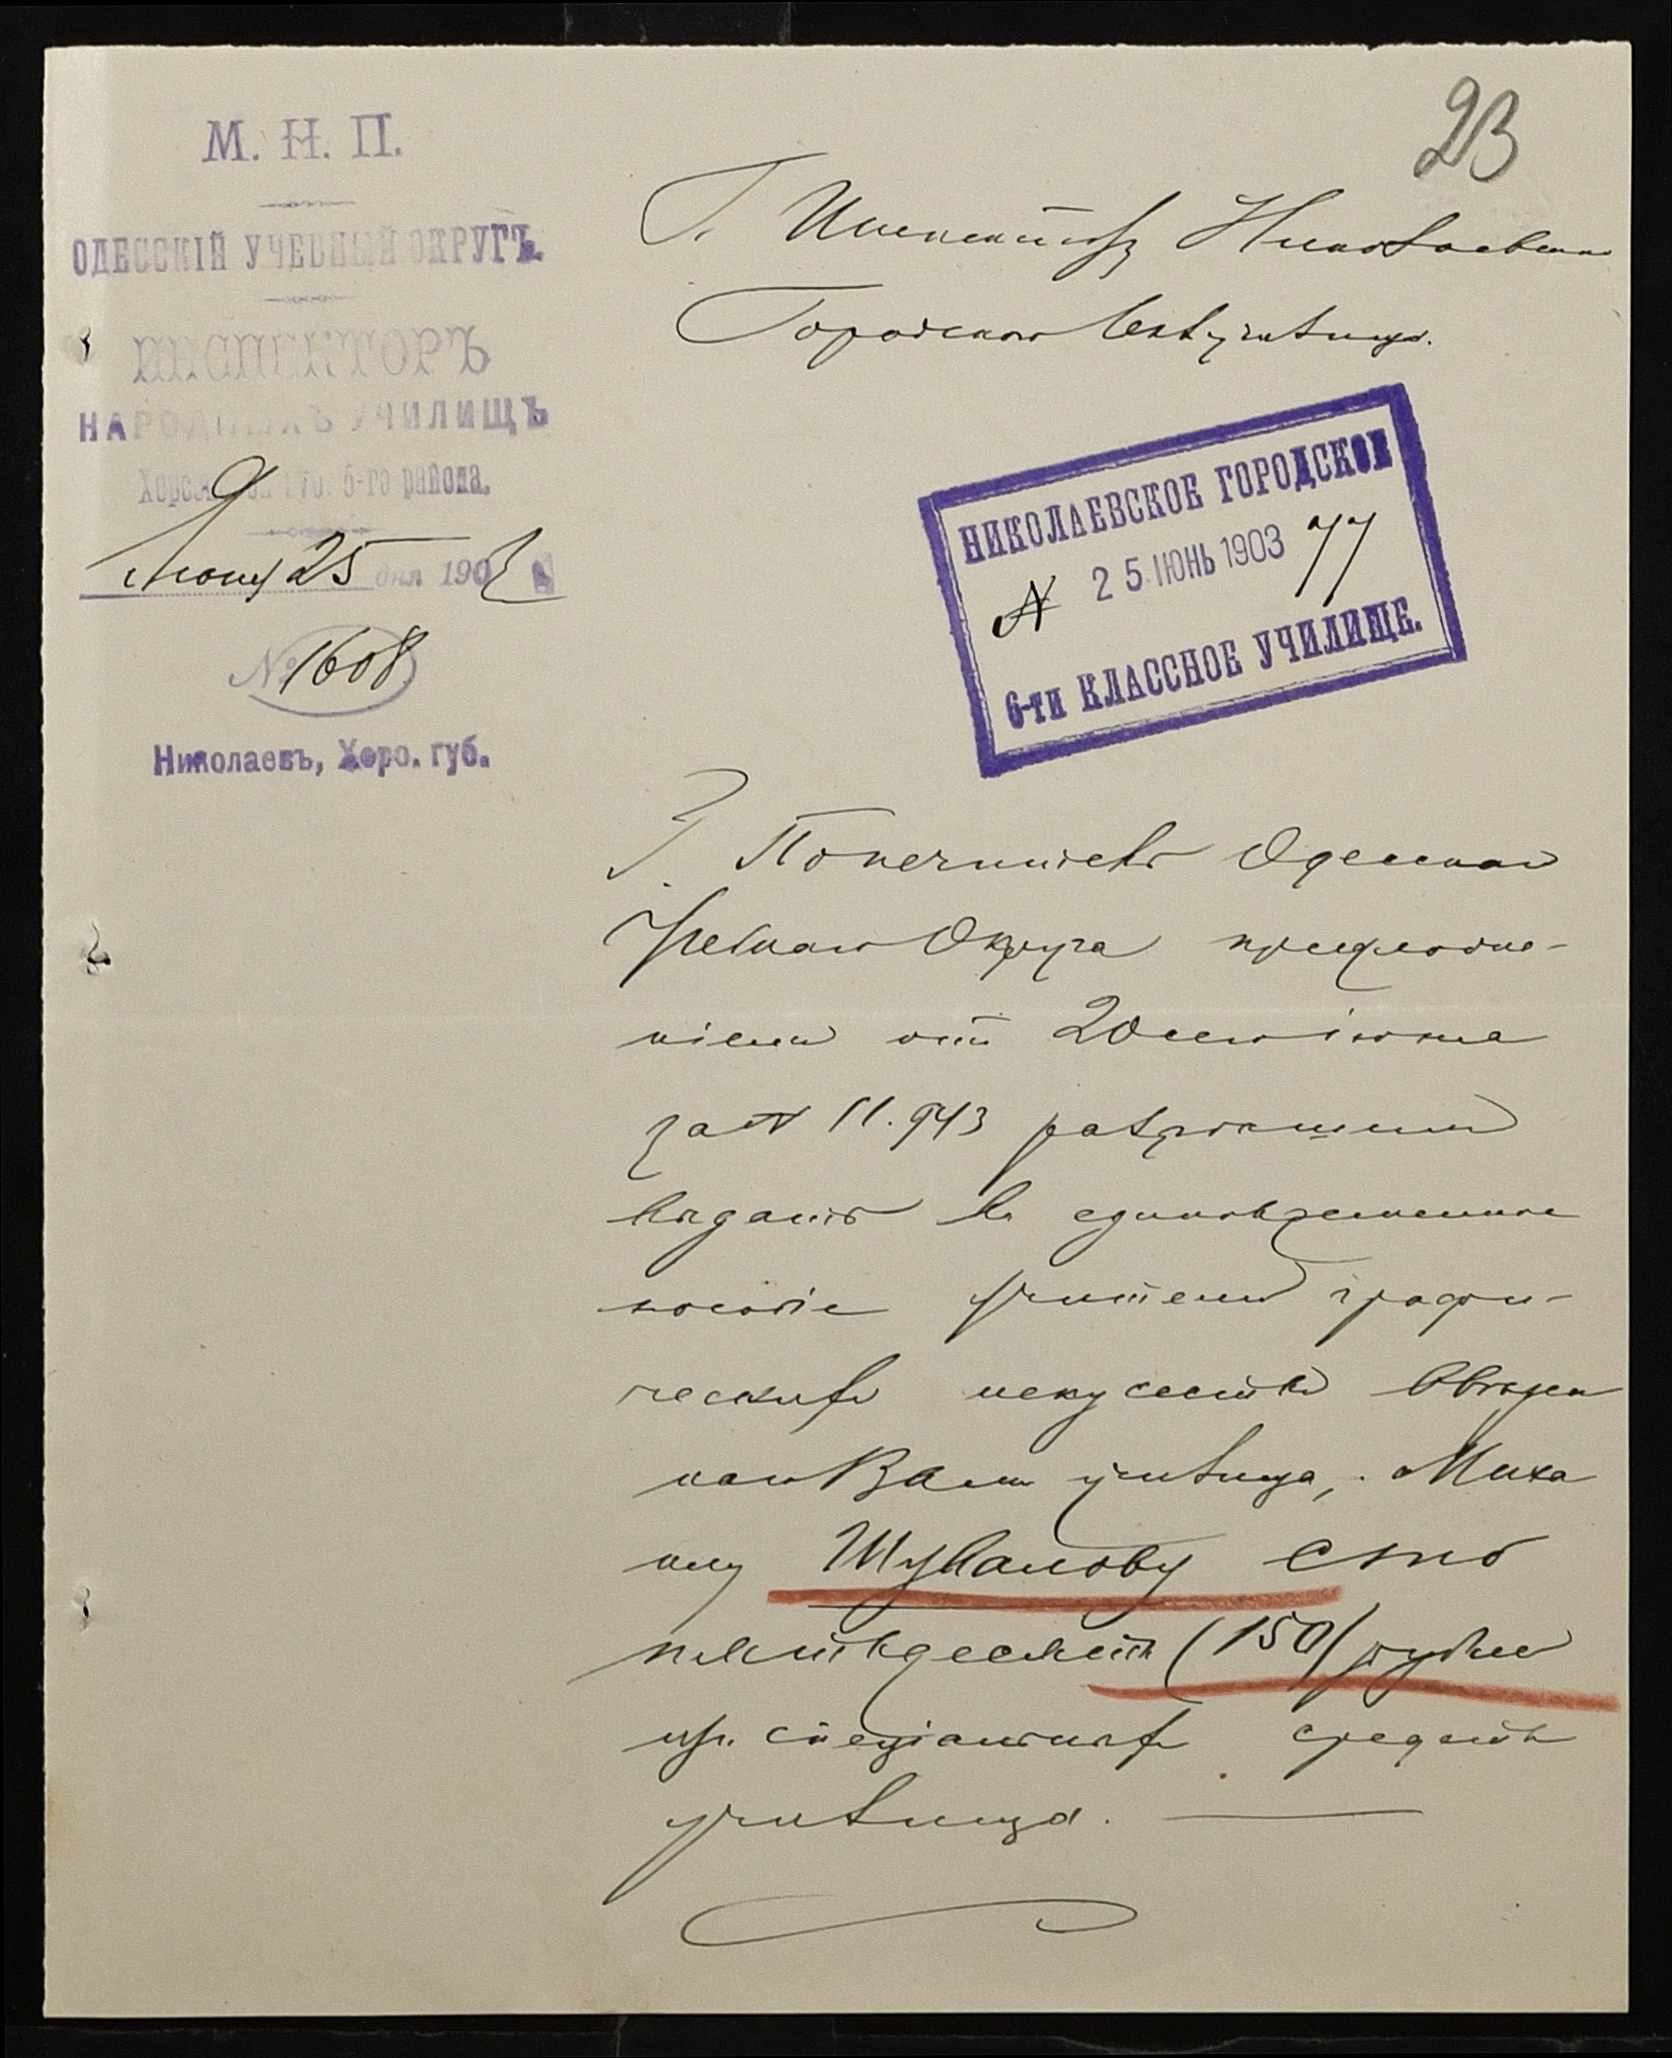 23
М. Н. П.
ОДЕССКІЙ УЧЕБНЫЙ ОКРУГЪ.
ИНСПЕКТОРЪ
НАРОДНЫХЪ УЧИЛИЩЪ
Херсонской губ. 5-го района.
Іюня 25 дня 1903 г.
№ 1608
Николаевъ, Херс. губ.
Г. Инспектору Николаевскаго
Городского училища.
НИКОЛАЕВСКОЕ ГОРОДСКОЕ
№ 25 ІЮНЬ 1903 77
6-ти КЛАССНОЕ УЧИЛИЩЕ.
Г. Попечитель Одесскаго
Учебнаго Округа предложе-
ніемъ отъ 20сего іюня
за № 11.943 разрѣшилъ
выдать въ единовременное
пособіе учителю графи-
ческихъ искусствъ ввѣрен
наго Вамъ училища, Миха
илу Шувалову сто
пятьдесятъ (150) рублей
изъ спеціальныхъ средствъ
училища.